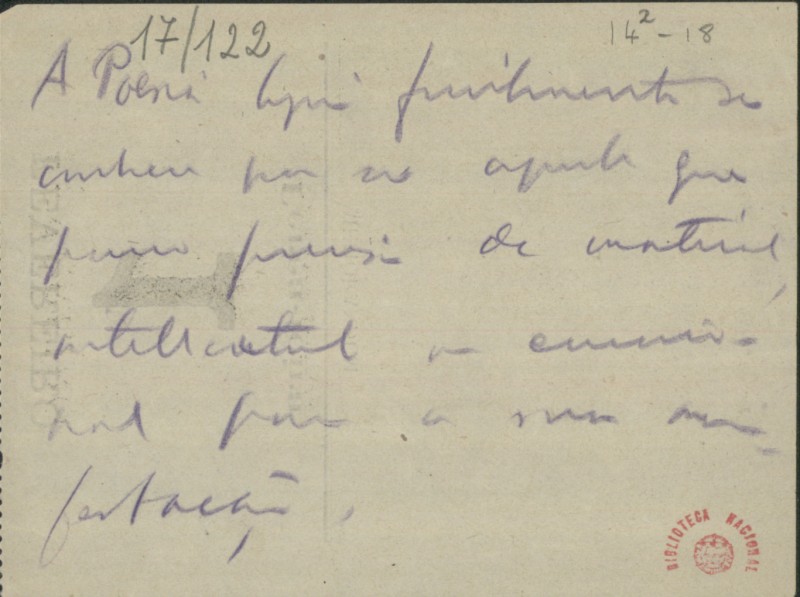 17/122
14²-18
A Poesia lyrica facilmente se
conhece por ser aquela que
pouco precisa de material,
intellectual ou emocio-
nal para a sua mani-
festação.
BIBLIOTECA NACIONAL